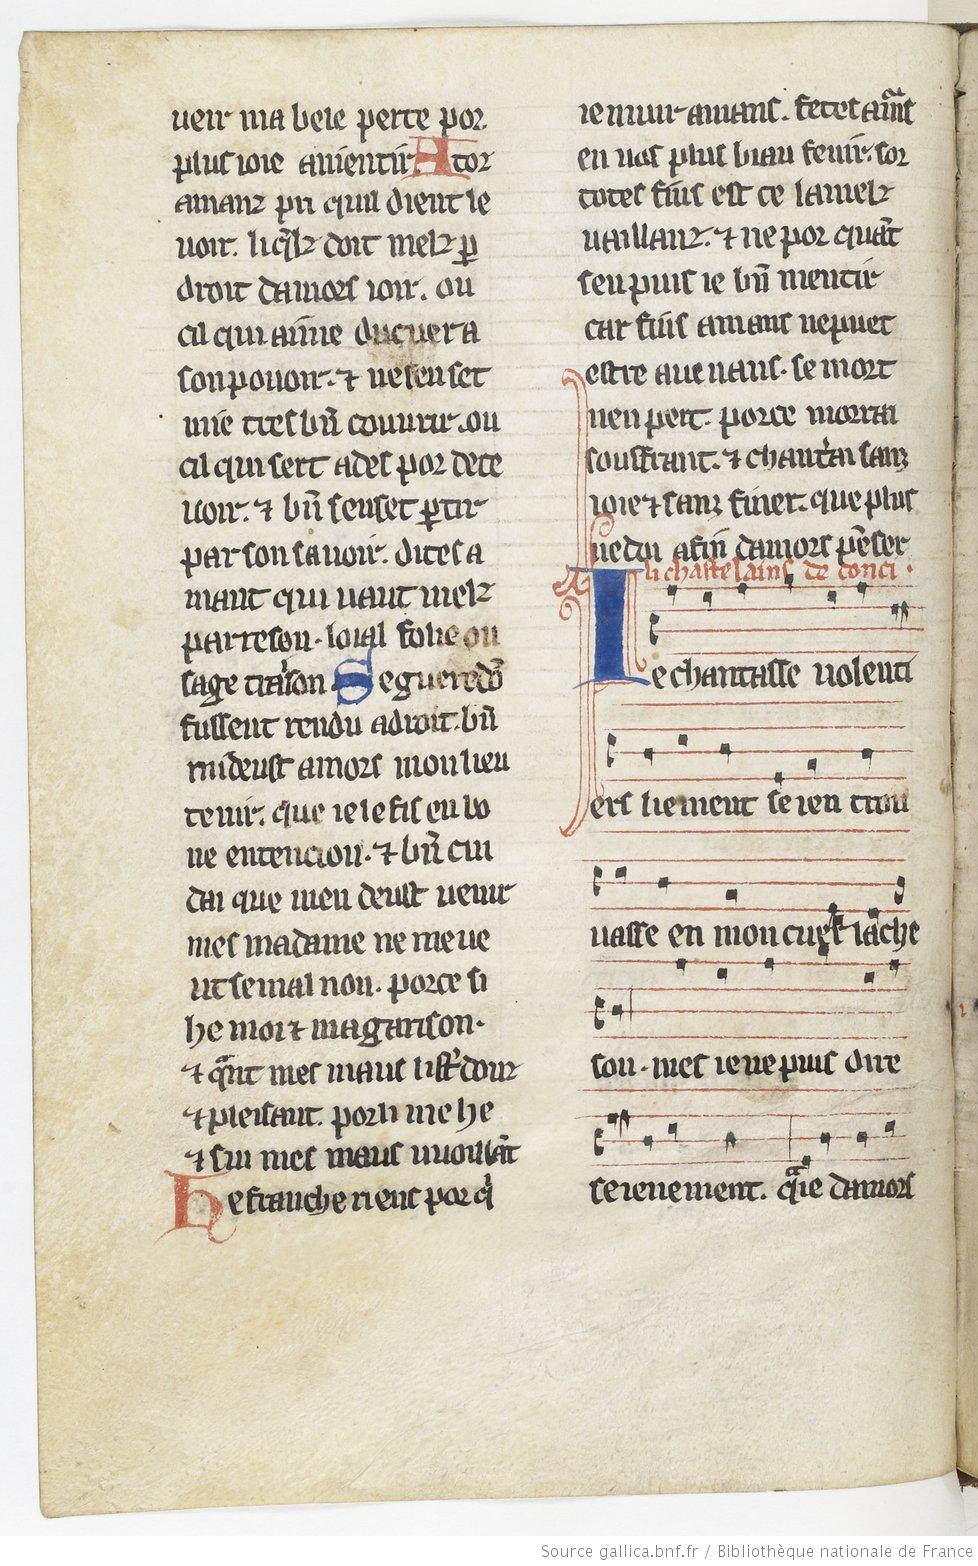 ueir ma bele perte por.
plus ioie auientir. A tor
amanz pri quil dient le
uoir. li q̃lz doit melz ꝑ
droit damors ioir. ou
cil qui aime du cuer a
son pouoir. ⁊ ne sen set
mie tres bñ couurir. ou
cil qui sert ades por dece
uoir. ⁊ bñ sen set ꝑtir
par son sauoir. dites a
mant qui uaut melz
par reson. loial folie ou
sage traison. Se gueredõ
fussent rendu a droit. bñ
mi deust amors mon lieu
tenir. que ie le fis en bo
ne entencion. ⁊ bñ cui
dai que men deust uenir
mes ma dame ne me ue
ut se mal non. por ce si
he moi ⁊ ma garison.
⁊ q̃nt mes maus li est dour
⁊ pleisant. por li me he
⁊ sui mes maus uuoillãt
He franche riens por q̃
ie muir amans. fetes a mĩs
en uos plus biau fenir. sor
totes fins est ce la melz
uaillanz. ⁊ ne por quãt
seu puis ie bñ mentir
car fins amans ne puet
estre auenans. se mort
nen pert. por ce morrai
souffrant. ⁊ chantai sanz
ioie ⁊ sanz finer. que plus
ne doi a fin damors pẽser
li chastelains de couci.
Ie chantasse uolenti
ers liement se ien trou
uasse en mon cuer lache
son. mes ie ne puis dire
se ie ne ment. q̃ ie damors
Source gallica.bnf.fr / Bibliothèque nationale de France